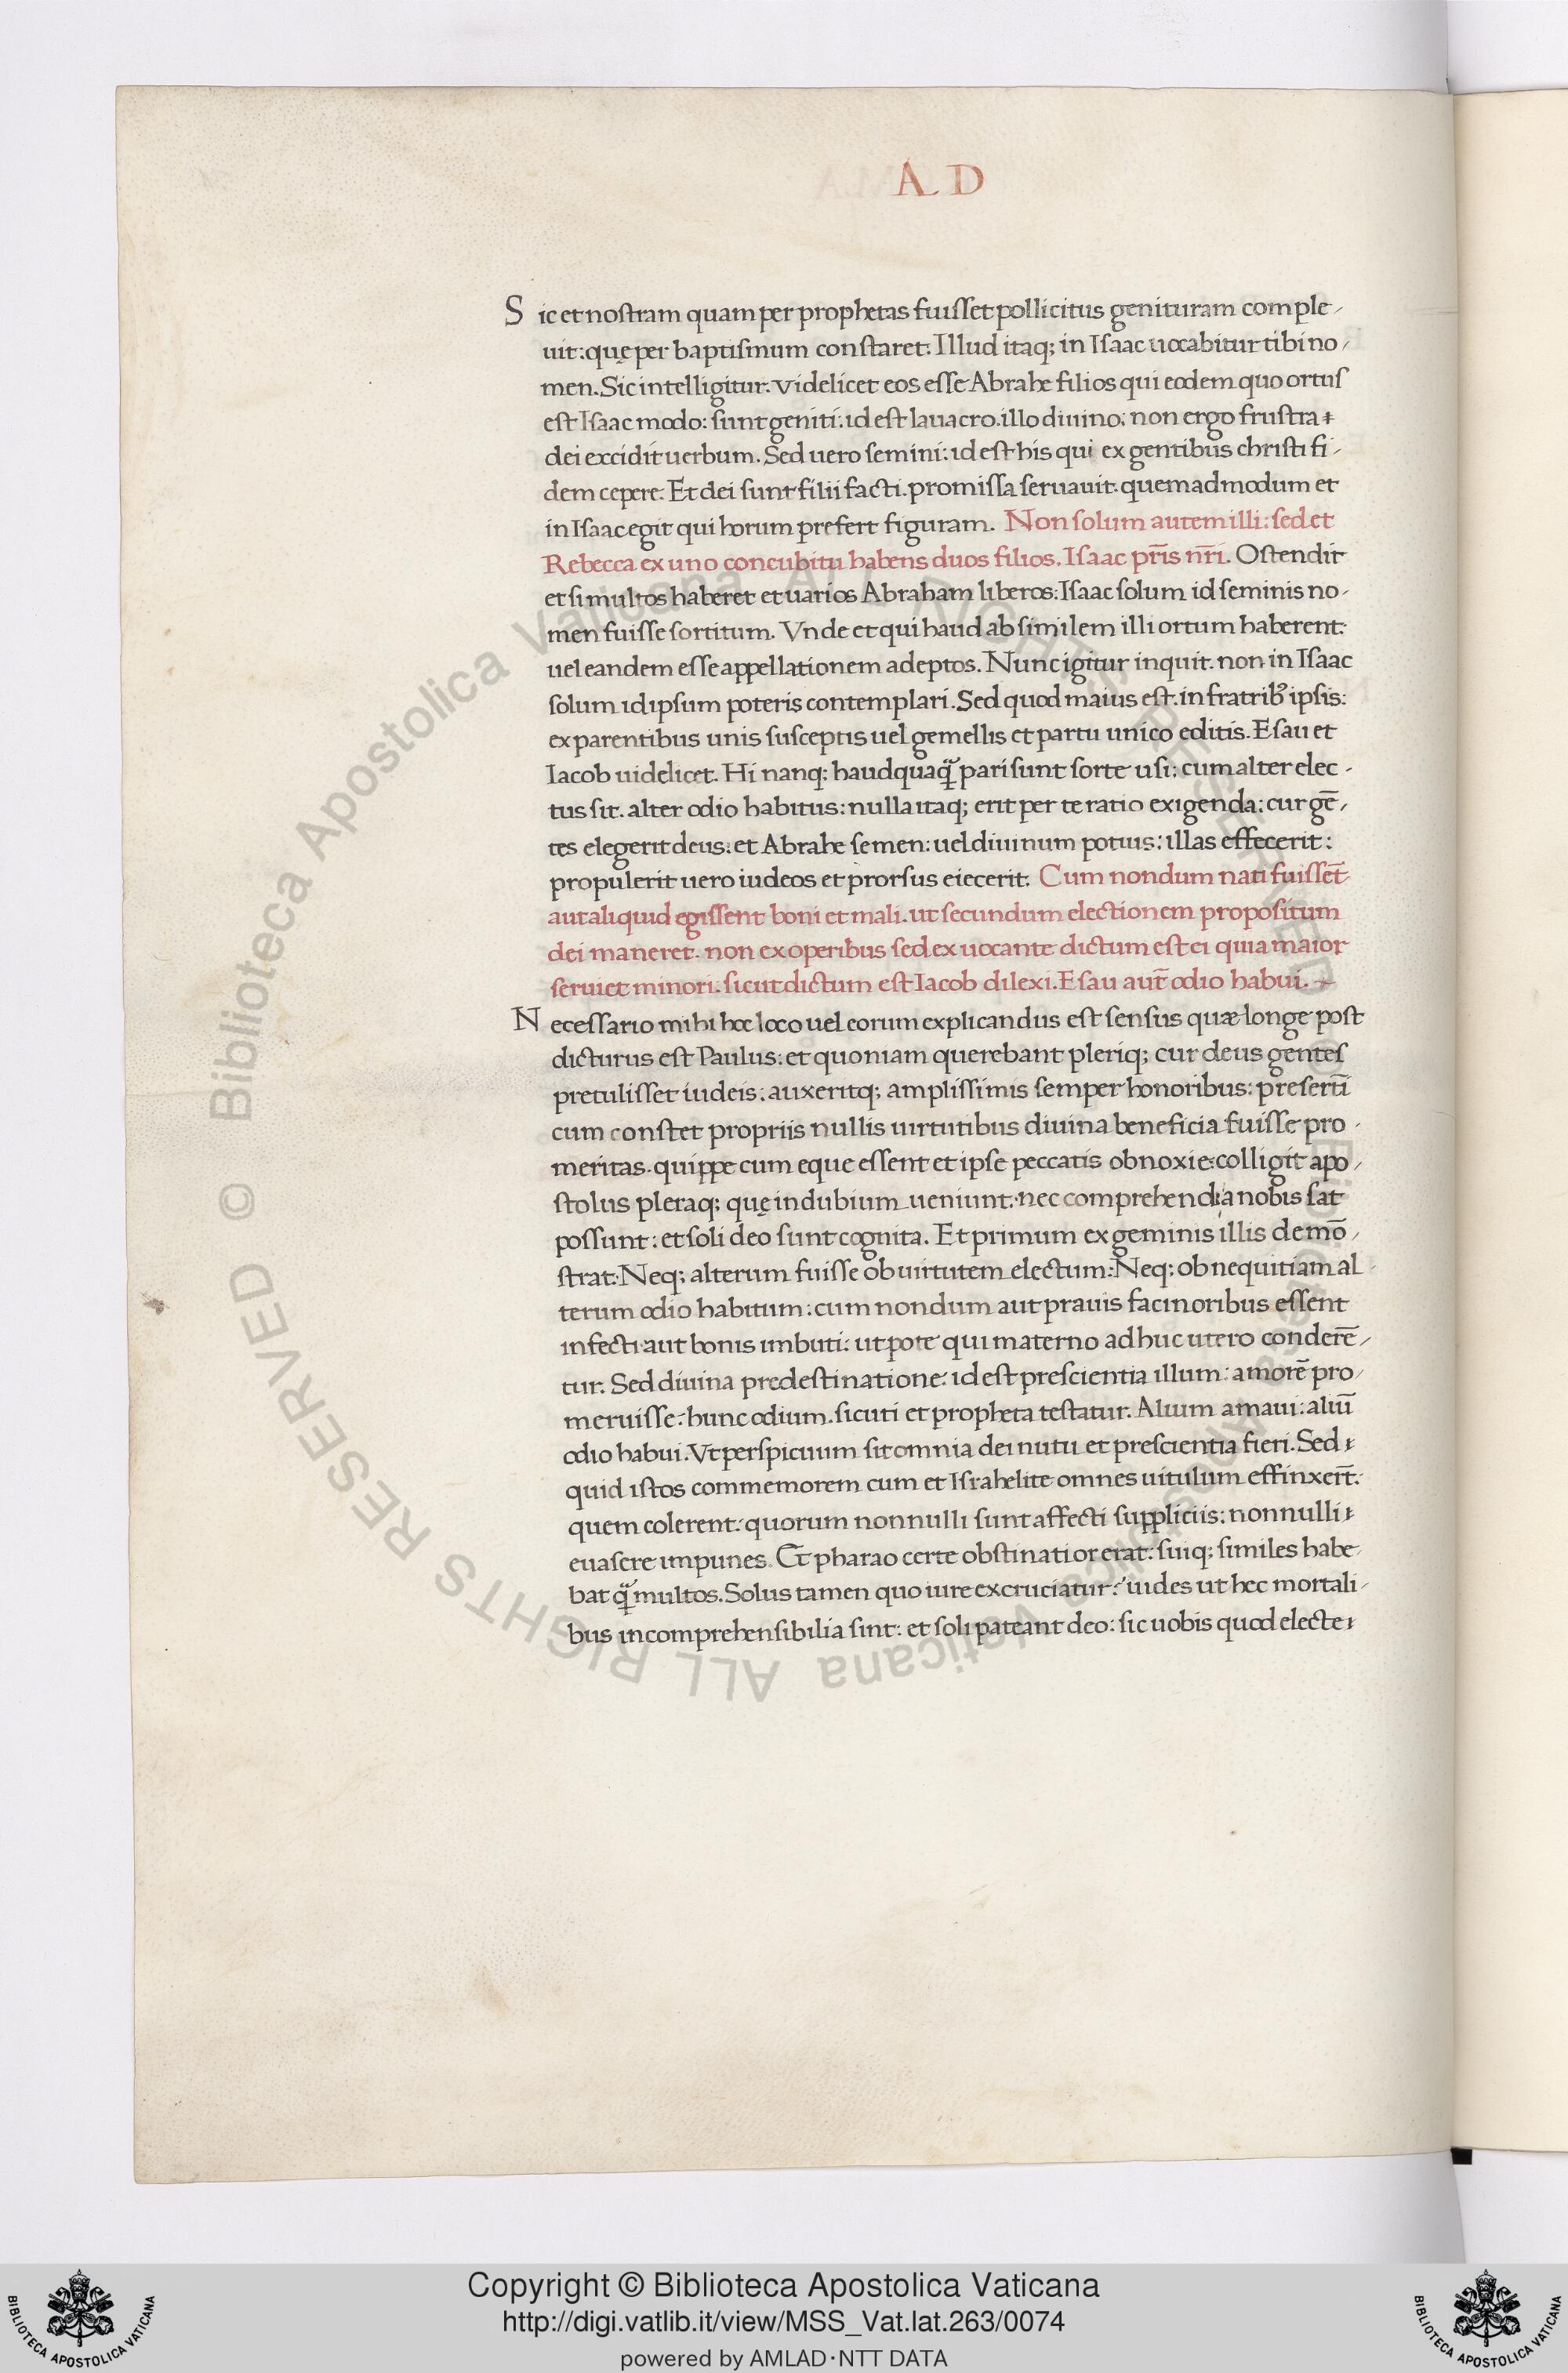 A D
Sic et nostram quam per prophetas fuisset pollicitus genituram comple-
uit: quę per baptismum constaret. Illud itaq; in Isaac uocabitur tibi no-
men. Sic intelligitur. videlicet eos esse Abrahe filios qui eodem quo ortus
est Isaac modo: sunt geniti: id est lauacro. illo diuino: non ergo frustra
dei excidit uerbum. Sed uero semini: id est his qui ex gentibus christi fi-
dem cepere. Et dei sunt filii facti. promissa seruauit. quemadmodum et
in Isaac egit qui horum prefert figuram. Non solum autem illi: sed et
Rebecca ex uno concubitu habens duos filios. Isaac pr̄is nr̄i. Ostendit
et si multos haberet et uarios Abraham liberos: Isaac solum id seminis no-
men fuisse sortitum. Vnde et qui haud absimilem illi ortum haberent:
uel eandem esse appellationem adeptos. Nunc igitur inquit. non in Isaac
solum id ipsum poteris contemplari. Sed quod maius est. in fratrib9 ipsis:
ex parentibus unis susceptis uel gemellis et partu unico editis. Esau et
Iacob uidelicet. Hi nanq: haudquaq̃ pari sunt sorte usi: cum alter elec-
tus sit. alter odio habitus: nulla itaq; erit per te ratio exigenda: cur gē-
tes elegerit deus: et Abrahe semen: uel diuinum potius: illas effecerit:
propulerit uero iudeos et prorsus eiecerit. Cum nondum nati fuissēt
aut aliquid egissent boni et mali. ut secundum electionem propositum
dei maneret. non ex operibus sed ex uocante dictum est ei quia maior
seruiet minori. sicut dictum est Iacob dilexi. Esau aut̄ odio habui.
Necessario mihi hoc loco uel eorum explicandus est sensus quæ longe post
dicturus est Paulus: et quoniam querebant pleriq; cur deus gentes
pretulisset iudeis: auxeritq; amplissimis semper honoribus: presertī
cum constet propriis nullis uirtutibus diuina beneficia fuisse pro-
meritas. quippe cum eque essent et ipse peccatis obnoxie: colligit apo-
stolus pleraq; quę in dubium ueniunt. nec comprehendi a nobis sat
possunt: et soli deo sunt cognita. Et primum ex geminis illis demō-
strat. Neq; alterum fuisse ob uirtutem electum: Neq; ob nequitiam al-
terum odio habitum: cum nondum aut prauis facinoribus essent
infecti aut bonis imbuti: ut pote qui materno adhuc utero conderē-
tur. Sed diuina predestinatione: id est prescientia illum: amorē pro-
meruisse: hunc odium. sicuti et propheta testatur. Alium amaui: aliū
odio habui. Vt perspicuum sit omnia dei nutu et prescientia fieri. Sed
quid istos commemorem cum et Israhelite omnes uitulum effinxert̄.
quem colerent: quorum nonnulli sunt affecti suppliciis: nonnulli
euasere impunes. Et pharao certe obstinatior erat: suiq; similes habe-
bat q̃ multos. Solus tamen quo iure excruciatur: uides ut hec mortali-
bus incomprehensibilia sint: et soli pateant deo: sic uobis quod electe
Copyright © Biblioteca Apostolica Vaticana
http://digi.vatlib.it/view/MSS_Vat.lat.263/0074
powered by AMLAD·NTT DATA
BIBLIOTECA APOSTOLICA VATICANA
BIBLIOTECA APOSTOLICA VATICANA
© Biblioteca Apostolica Vaticana ALL RIGHTS RESERVED © Biblioteca Apostolica Vaticana ALL RIGHTS RESERVED